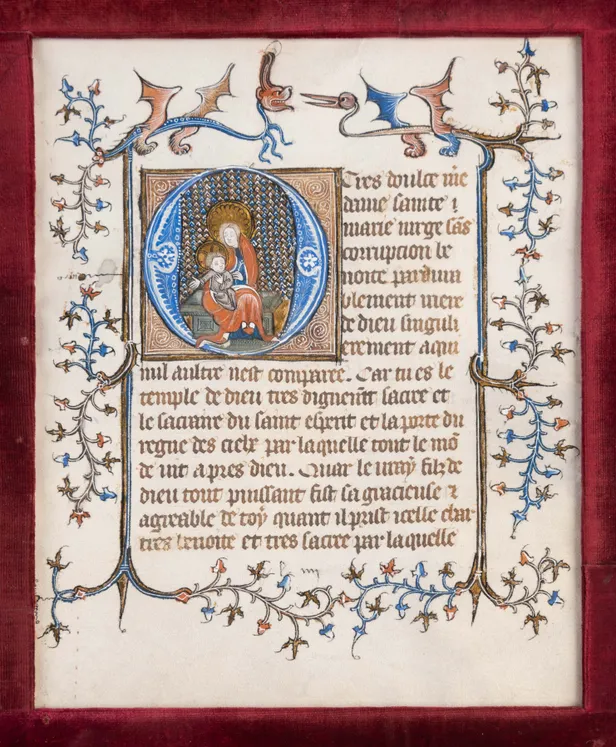 O Tres doulce me
dame sainte ⁊
marie uirge sãs
corrupcion be
noite pardura
blement mere
de dieu singuli
erement a qui
nul aultre nest comparee. Car tu es le
temple de dieu tres digneint sacre et
le sacraire du saint esperit et la porte du
regne des cielx par laquelle tout le mõ
de uit apres dieu. Quar le uray filz de
dieu tout puissant fist sa gracieuse ⁊
agreable de toy quant il prist icelle char
tres benoite et tres sacree par laquelle